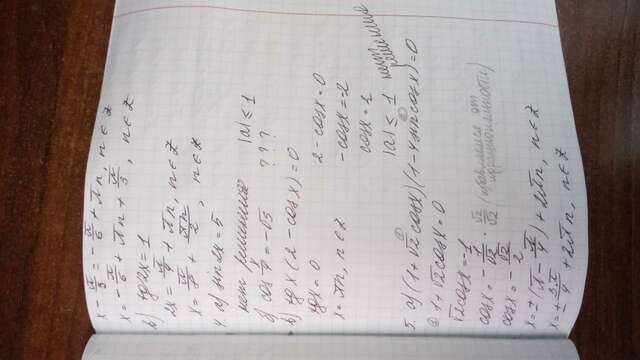 x - π/3 = -π/6 + πn, n∈Z
x = -π/6 + πn + π/3, n∈Z
в) tg2x=1
2x = π/4 + πn, n∈Z
x = π/8 + πn/2, n∈Z
4. а) sin2x=5
нет решений |a|≤1
б) cos x/4 = -√3 ???
в) tgx(2-cosx)=0
tgx=0 2-cosx=0
x=πn, n∈Z -cosx=-2
cosx=2
|a|≤1 нет решения
5. а) (1+√2cosx)(1-4sinxcosx)=0
① 1+√2cosx=0
√2cosx=-1
cosx = -1/√2 · √2/√2 (избавляемся от иррациональности)
cosx = -√2/2
x=±(π-π/4)+2πn, n∈Z
x=±3π/4+2πn, n∈Z